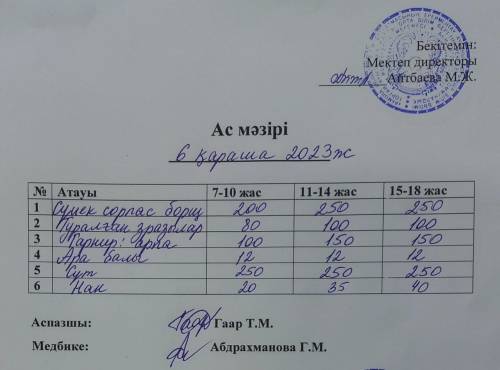 Бекітемін:
Мектеп директоры
Айтбаева М.Ж.
Ас мәзірі
6 қараша 2023ж
№ Атауы 7-10 жас 11-14 жас 15-18 жас
1 сорпас борщ 200 250 250
2 Туралған зразылар 80 100 100
3 Гарнир: арпа 100 150 150
4 Ара балы 12 12 12
5 Сүт 250 250 250
6 Нан 20 35 40
Аспазшы: Гаар Т.М.
Медбике: Абдрахманова Г.М.